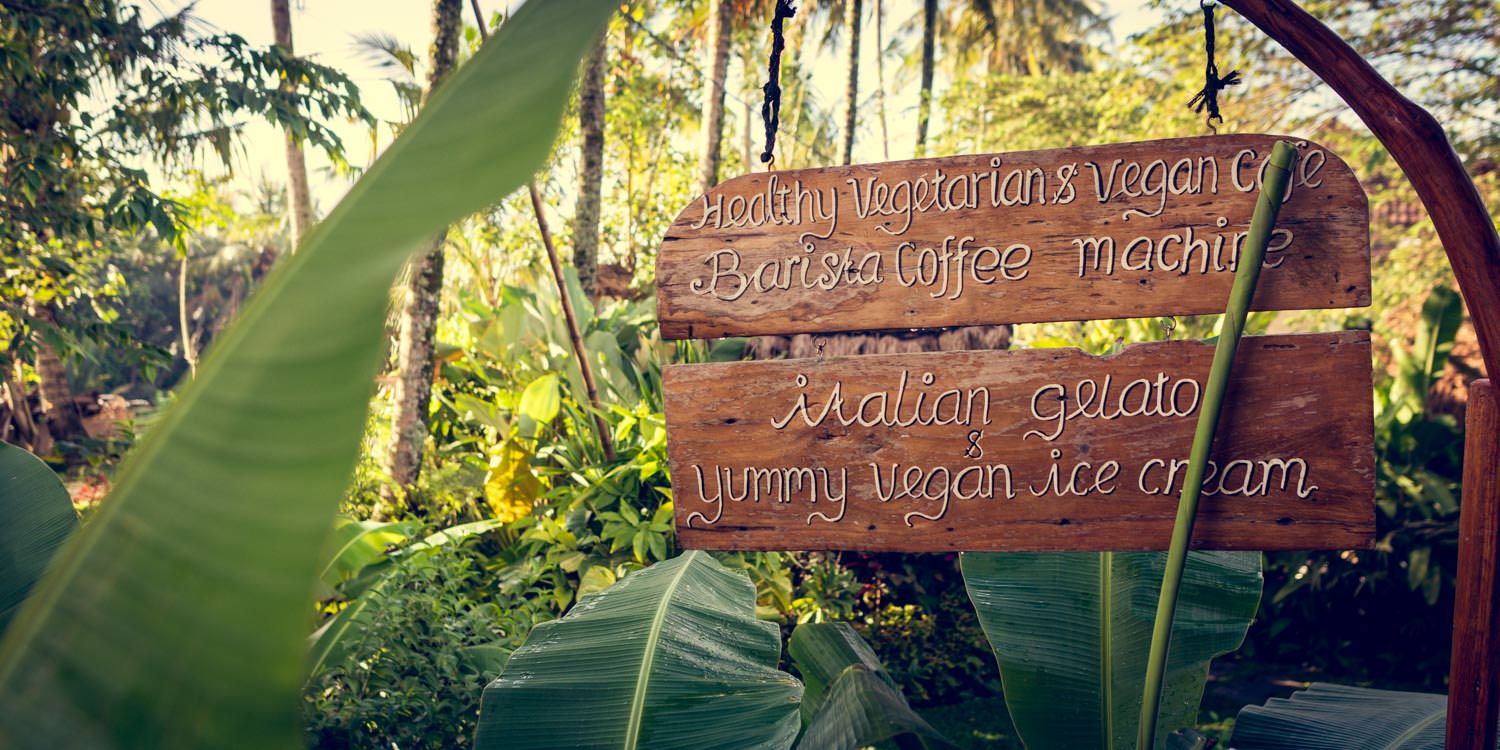 Healthy Vegetarian & Vegan Cafe
Barista Coffee machine
italian gelato
&
yummy vegan ice cream